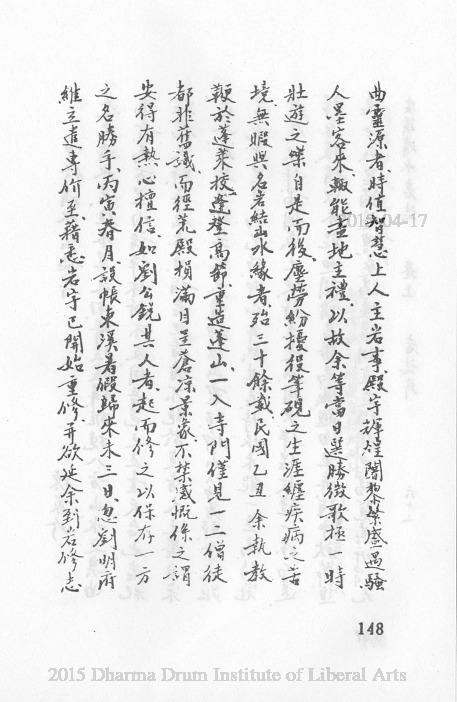 曲靈源者時值智慧上人主岩事殿宇輝煌闍黎榮盛遇騷
人墨客來輒能盡地主禮以故余等當日選勝徵歌極一時
壯遊之樂自是而後塵勞紛擾役筆硯之生涯纏疾病之苦
境無暇與名岩結山水緣者殆三十餘載民國乙丑余執教
鞭於蓬萊校逢登高節重造蓬山一入寺門僅見一二僧徒
都非舊識而徑荒殿損滿目呈蒼凉景象不禁感慨係之謂
安得有熱心檀信如劉公銳其人者起而修之以保存一方
之名勝乎丙寅春月設帳東溪暑假歸來未三日忽劉明府
維立遣專价至藉悉岩宇已開始重修并欲延余到岩修志
148
2015-04-17
2015 Dharma Drum Institute of Liberal Arts